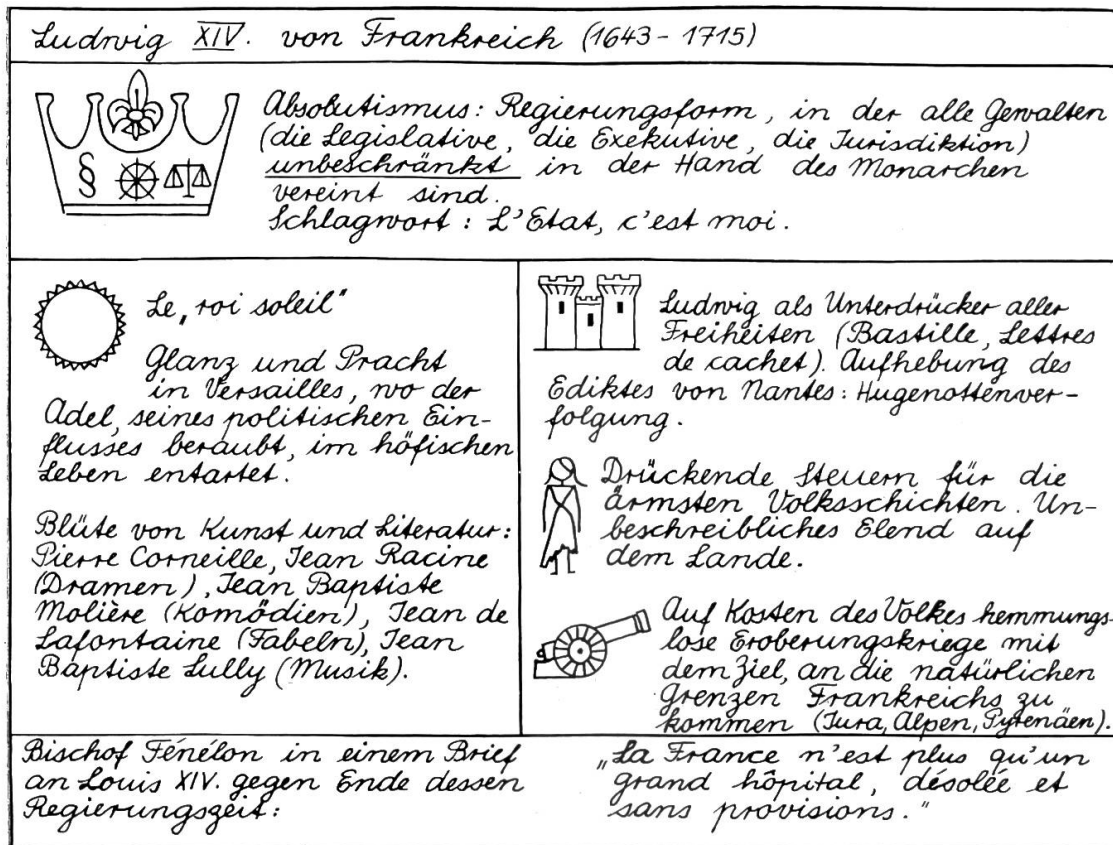 Ludwig XIV. von Frankreich (1643 - 1715)
Absolutismus: Regierungsform, in der alle Gewalten
(die Legislative, die Exekutive, die Jurisdiktion)
unbeschränkt in der Hand des Monarchen
vereint sind.
Schlagwort: L'Etat, c'est moi.
§
Le „roi soleil"
Glanz und Pracht
in Versailles, wo der
Adel, seines politischen Ein-
flusses beraubt, im höfischen
Leben entartet.
Blüte von Kunst und Literatur:
Pierre Corneille, Jean Racine
(Dramen), Jean Baptiste
Molière (Komödien), Jean de
Lafontaine (Fabeln), Jean
Baptiste Lully (Musik).
Ludwig als Unterdrücker aller
Freiheiten (Bastille, Lettres
de cachet). Aufhebung des
Ediktes von Nantes: Hugenottenver-
folgung.
Drückende Steuern für die
ärmsten Volksschichten. Un-
beschreibliches Elend auf
dem Lande.
Auf Kosten des Volkes hemmungs-
lose Eroberungskriege mit
dem Ziel, an die natürlichen
Grenzen Frankreichs zu
kommen (Jura, Alpen, Pyrenäen).
Bischof Fénélon in einem Brief
an Louis XIV. gegen Ende dessen
Regierungszeit:
„La France n'est plus qu'un
grand hôpital, désolée et
sans provisions."